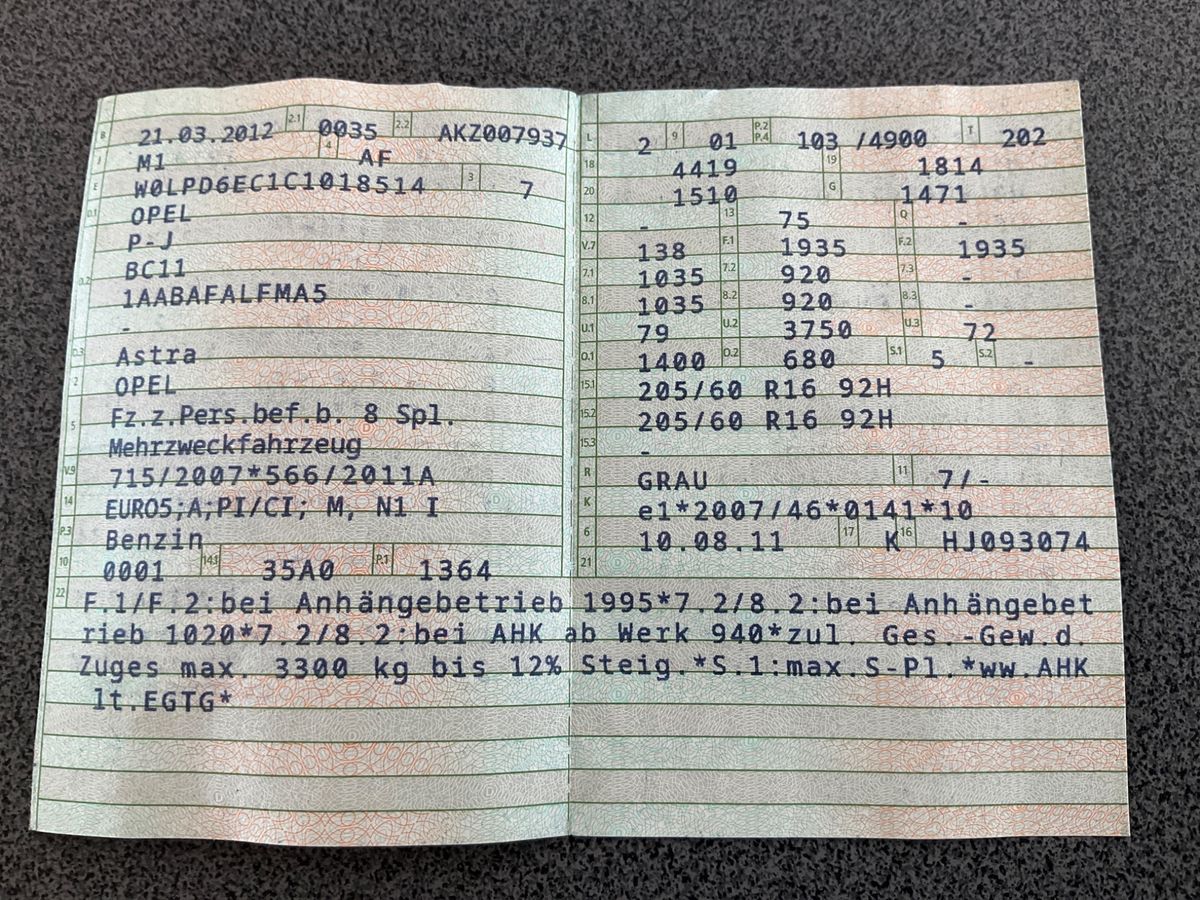 B 21.03.2012 2.1 0035 2.2 AKZ007937
J M1 4 AF
E W0LPD6EC1C1018514 3 7
D.1 OPEL
P-J
D.2 BC11
1AABAFALFMA5
-
D.3 Astra
2 OPEL
5 Fz.z.Pers.bef.b. 8 Spl.
Mehrzweckfahrzeug
V.9 715/2007*566/2011A
14 EURO5;A;PI/CI; M, N1 I
P.3 Benzin
10 0001 14.1 35A0 P.1 1394
L 2 9 01 P.2 P.4 103 /4900 T 202
18 4419 19 1814
20 1510 G 1471
12 - 13 75 Q -
V.7 138 F.1 1935 F.2 1935
7.1 1035 7.2 920 7.3 -
8.1 1035 8.2 920 8.3 -
U.1 79 U.2 3750 U.3 72
O.1 1400 O.2 680 S.1 5 S.2 -
15.1 205/60 R16 92H
15.2 205/60 R16 92H
15.3 -
R GRAU 11 7/-
K e1*2007/46*0141*10
6 10.08.11 17 K 16 HJ093074
21
22 F.1/F.2:bei Anhängebetrieb 1995*7.2/8.2:bei Anhängebet
rieb 1020*7.2/8.2:bei AHK ab Werk 940*zul. Ges.-Gew.d.
Zuges max. 3300 kg bis 12% Steig.*S.1:max.S-Pl.*ww.AHK
lt.EGTG*